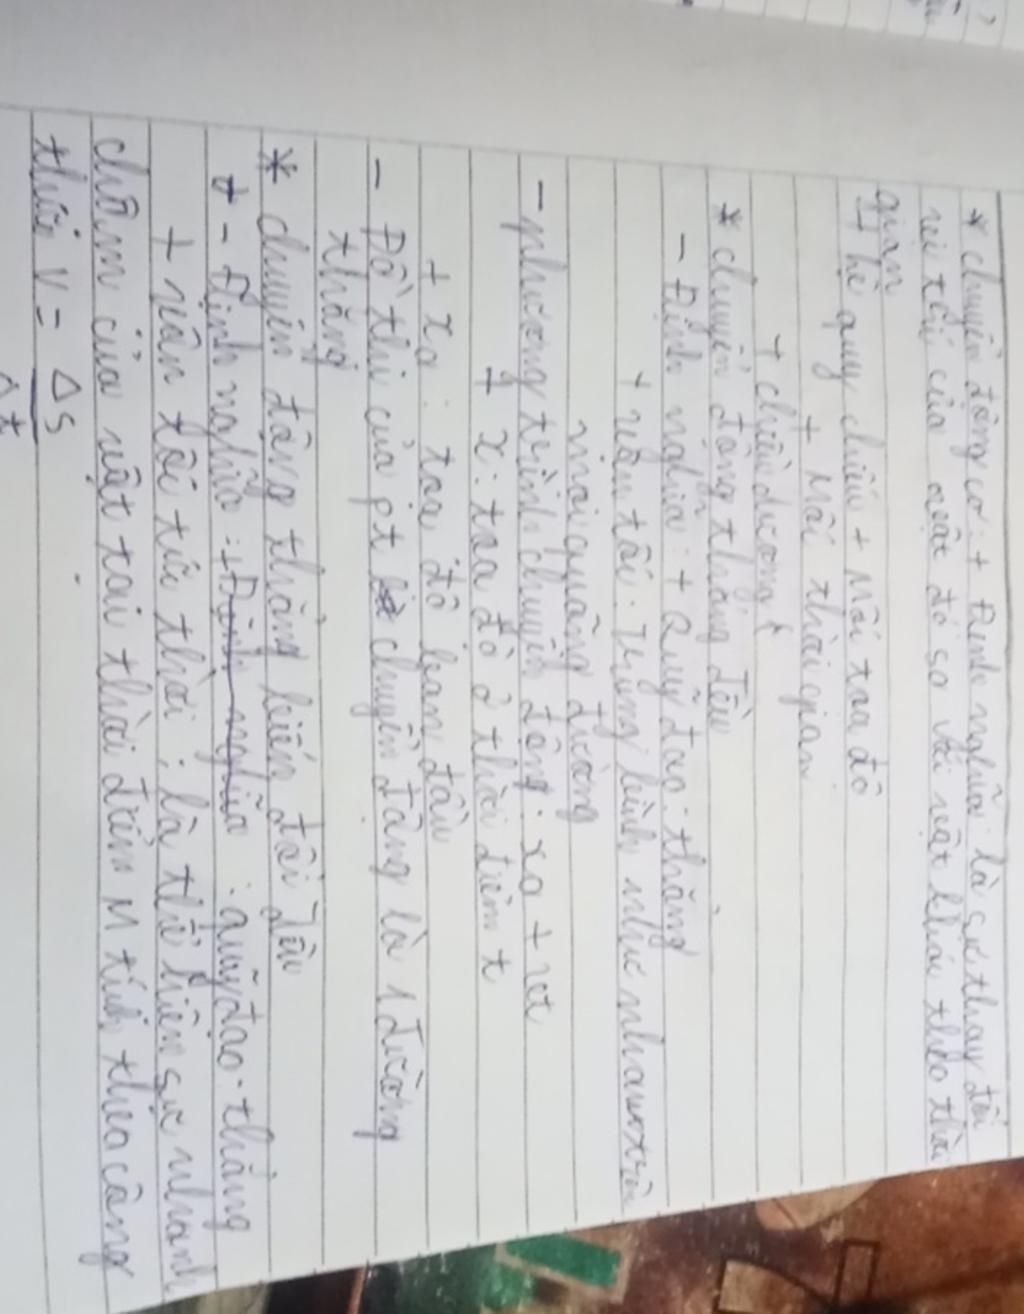 * chuyển động cơ: + Định nghĩa: là sự thay đổi
vị trí của vật đó so với vật khác theo thời
gian
+ hệ quy chiếu + Mốc toạ độ
+ Mốc thời gian
+ chiều dương
* chuyển động thẳng đều
- Định nghĩa: + Quỹ đạo: thẳng
+ vận tốc: Trung bình như nhau trên
mọi quãng đường
- phương trình chuyển động: xo + vt
+ x: toạ độ ở thời điểm t
+ xo: toạ độ ban đầu
- Đồ thị của pt chuyển động là 1 đường
thẳng
* chuyển động thẳng biến đổi đều
+ - Định nghĩa: + Định nghĩa: quỹ đạo: thẳng
+ vận tốc tức thời: là thể hiện sự nhanh
chậm của vật tại thời điểm M tính theo công
thức V = Δs
Δt